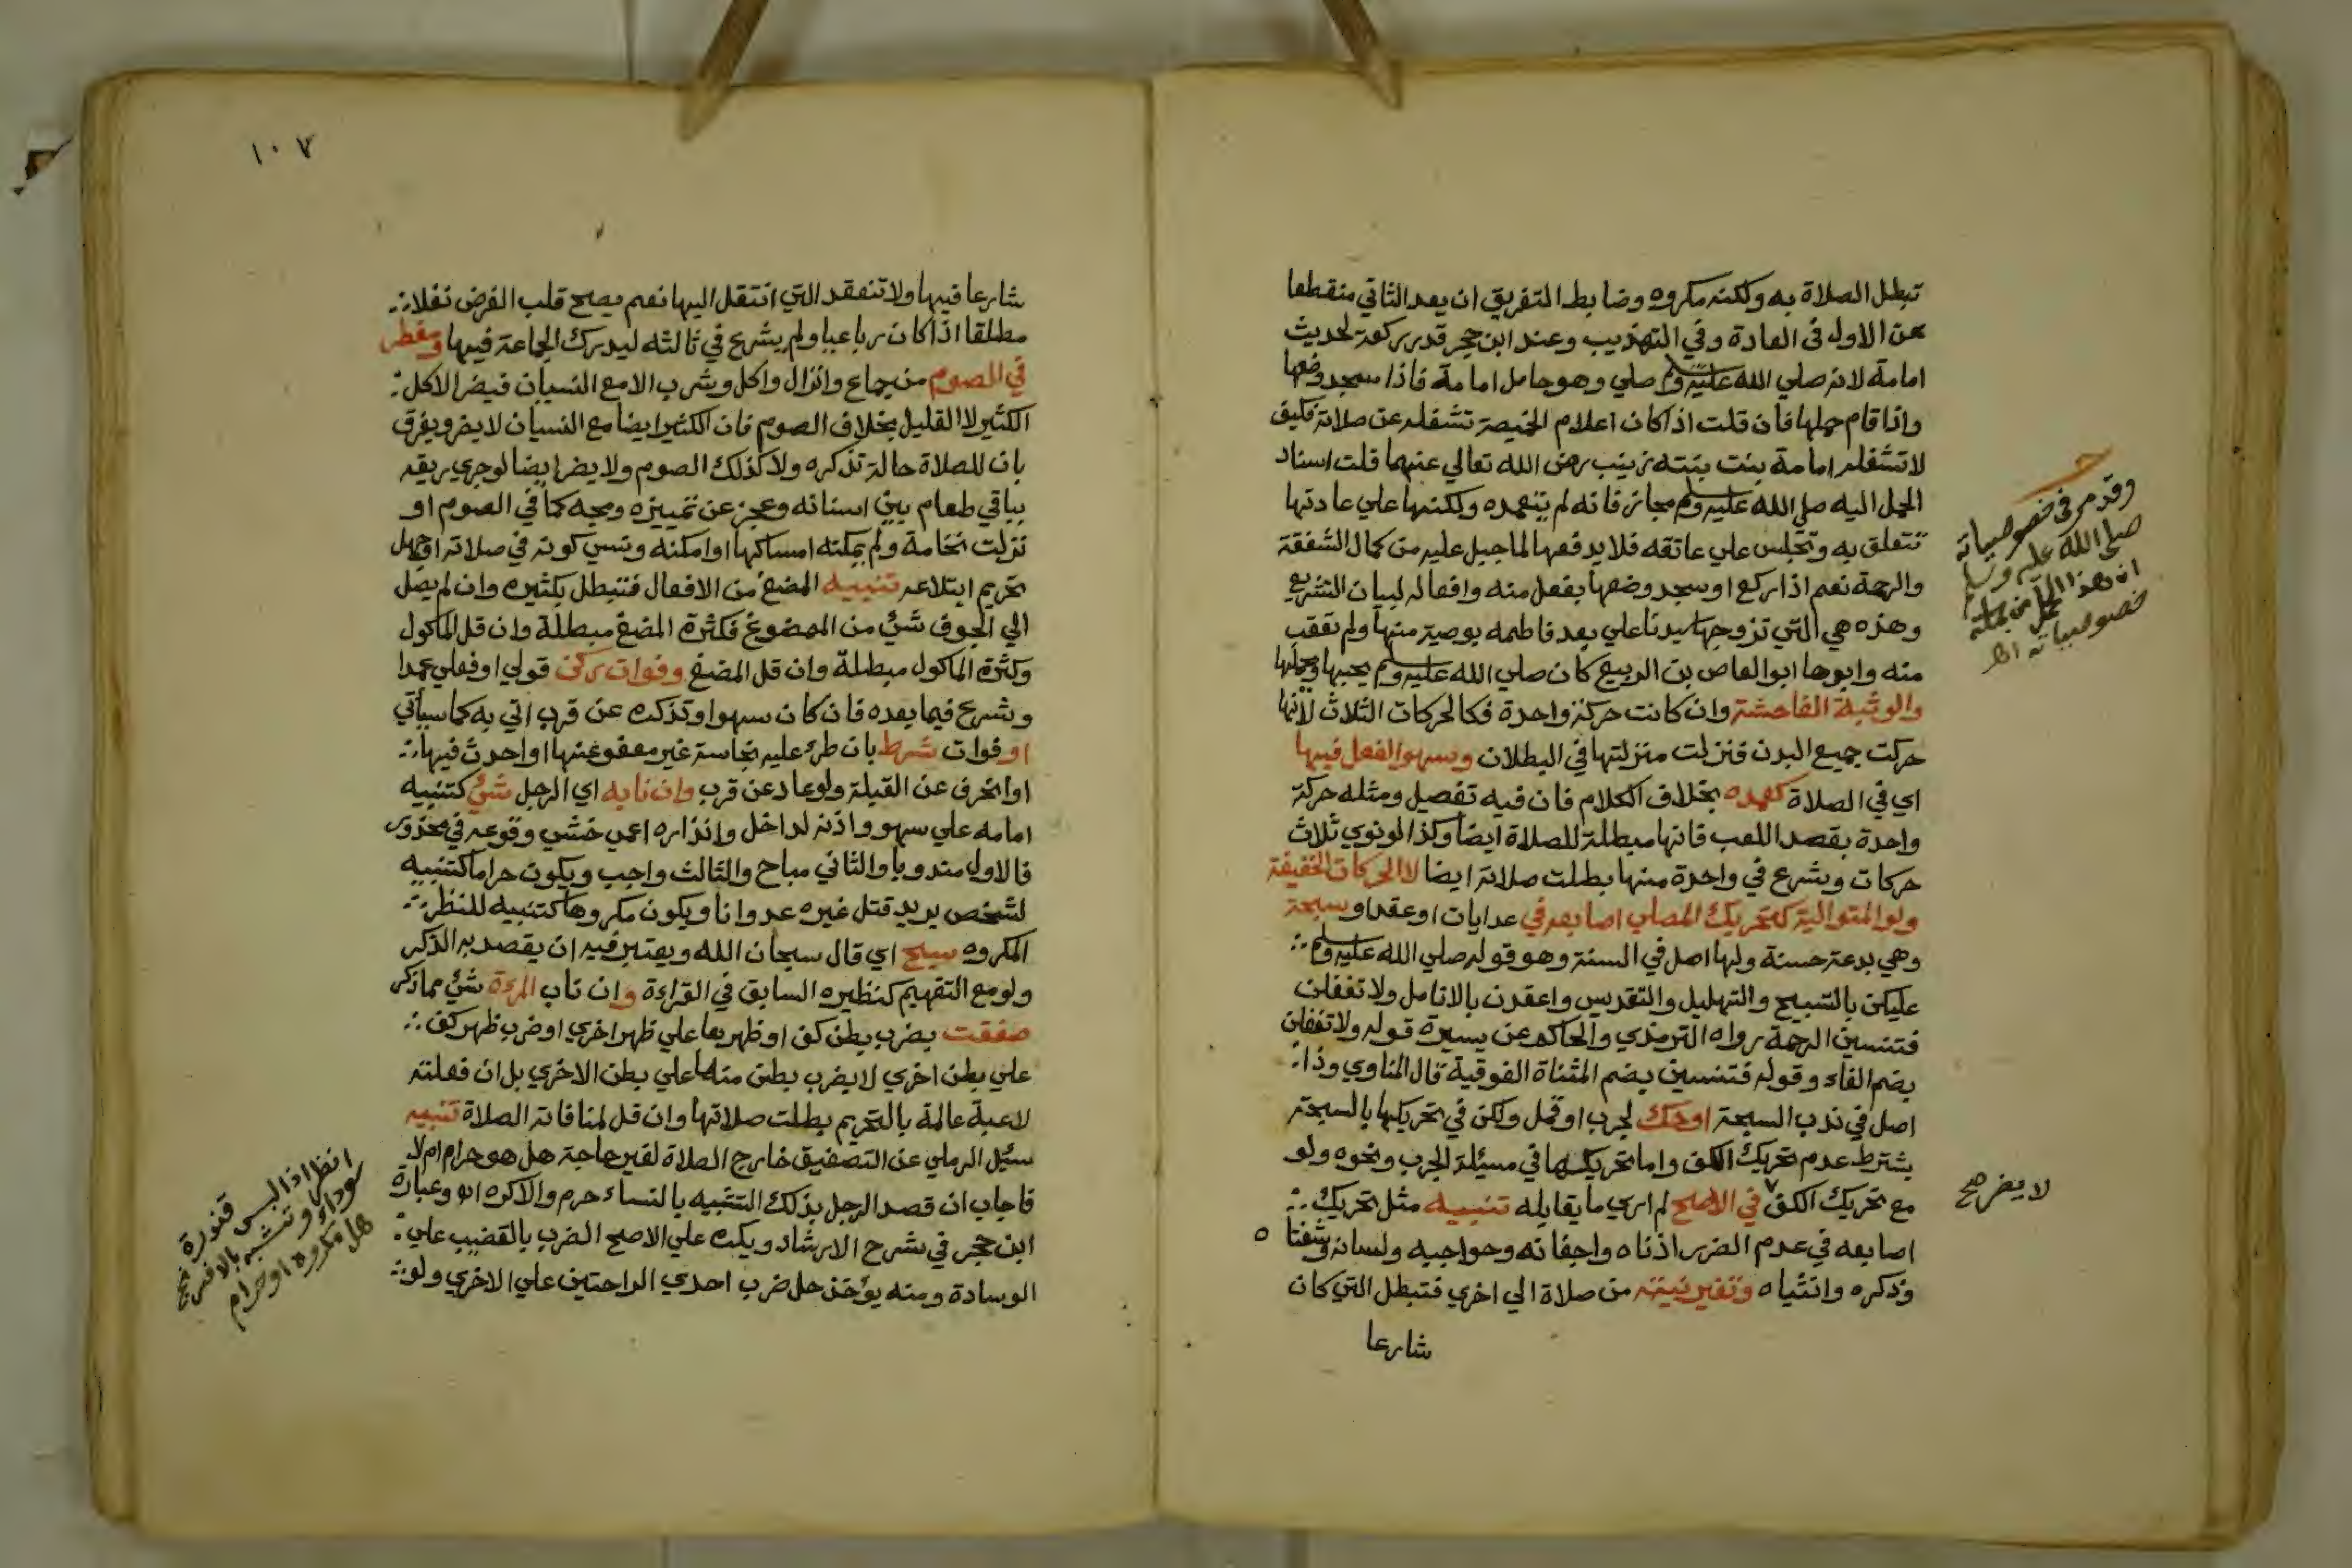 تبطل الصلاة به ولكنه مكروه وضابط التفريق ان يعد الثاني منقطعا
عن الاول في العادة وفي التهذيب وعند ابن حجر قدر ركعة لحديث
امامة لانه صلي الله عليه وسلم صلي وهو حامل امامة فاذا سجد وضعها
واذا قام حملها فان قلت اذا كان اعلام الخميصة تشغله عن صلاته فكيف
لا تشغله امامة بنت بنته زينب رضي الله تعالي عنهما قلت اسناد
الحمل اليه صلي الله عليه وسلم مجاز فانه لم يتعمده ولكنها علي عادتها
تتعلق به وتجلس علي عاتقه فلا يدفعها لما جبل عليه من كمال الشفقة
والرحمة نعم اذا ركع او سجد وضعها بفعل منه وافعاله لبيان التشريع
وهذه هي التي تزوجها سيدنا علي بعد فاطمه بوصية منها ولم تعقب
منه وابوها ابو العاص بن الربيع كان صلي الله عليه وسلم يحبها ويحملها
والوثبة الفاحشة وان كانت حركة واحدة فكالحركات الثلاث لانها
حركت جميع البدن فنزلت منزلتها في البطلان وسهو الفعل فيها
اي في الصلاة كعمده بخلاف الكلام فان فيه تفصيل ومثله حركة
واحدة بقصد اللعب فانها مبطلة للصلاة ايضا وكذا لو نوي ثلاث
حركات وشرع في واحدة منها بطلت صلاته ايضا لا الحركات الخفيفة
ولو المتوالية كتحريك المصلي اصابعه في عد ايات او عقد او سبحة
وهي بدعة حسنة ولها اصل في السنة وهو قوله صلي الله عليه وسلم
عليكن بالتسبيح والتهليل والتقديس واعقدن بالانامل ولا تغفلن
فتنسين الرحمة رواه الترمذي والحاكم عن يسيرة قوله ولا تغفلن
بضم الفاء وقوله فتنسين بضم المثناة الفوقية قال المناوي وذا
اصل في ندب السبحة او حك لجرب او قمل ولكن في تحريكها بالسبحة
يشترط عدم تحريك الكف واما تحريكها في مسئلة الجرب ونحوه ولو
مع تحريك الكف في الاصح لم اري ما يقابله تنبيه مثل تحريك
اصابعه في عدم الضرر اذناه واجفانه وحواجبه ولسانه وشفتاه
وذكره وانثياه وتغير نيته من صلاة الي اخري فتبطل التي كان
شارعا
وقد مر في خصوصياته
صلي الله عليه وسلم
ان هذا الحمل من جملة
خصوصياته اه
لا يضر صح
١٠٧
شارعا فيها ولا تنعقد التي انتقل اليها نعم يصح قلب الفرض نفلا
مطلقا اذا كان رباعيا ولم يشرع في ثالثه ليدرك الجماعة فيها ومفطر
في الصوم من جماع وانزال واكل وشرب الا مع النسيان فيضر الاكل
الكثير لا القليل بخلاف الصوم فان الكثير ايضا مع النسيان لا يضر ويفرق
بان للصلاة حالة تذكره ولا كذلك الصوم ولا يضر ايضا لو جري ريقه
بباقي طعام بين اسنانه وعجز عن تمييزه ومجه كما في الصوم او
نزلت نخامة ولم يمكنه امساكها او امكنه ونسي كونه في صلاته او جهل
تحريم ابتلاعه تنبيه المضغ من الافعال فتبطل بكثيره وان لم يصل
الي الجوف شئ من الممضوغ فكثرة المضغ مبطلة وان قل الماكول
وكثرة الماكول مبطلة وان قل المضغ وفوات ركن قولي او فعلي عمدا
وشرع فيما بعده فان كان سهوا وتذكره عن قرب اتي به كما سيأتي
او فوات شرط بان طرئ عليه نجاسة غير معفو عنها او احدث فيها
او انحرف عن القبلة ولو عاد عن قرب وان نابه اي الرجل شئ كتنبيه
امامه علي سهو واذنه لداخل وانذاره اعمي خشي وقوعه في محذور
فالاول مندوبا والثاني مباح والثالث واجب ويكون حراما كتنبيه
لشخص يريد قتل غيره عدوانا ويكون مكروها كتنبيه للنظر
المكروه سبح اي قال سبحان الله ويعتبر فيه ان يقصد به الذكر
ولو مع التفهيم كنظيره السابق في القراءة وان ناب المرءة شئ مما ذكر
صفقت بضرب بطن كف او ظهرها علي ظهر اخري او ضرب ظهر كف
علي بطن اخري لا بضرب بطن منها علي بطن الاخري بل ان فعلته
لاعبة عالمة بالتحريم بطلت صلاتها وان قل لمنافاته الصلاة تنبيه
سئيل الرملي عن التصفيق خارج الصلاة لغير حاجة هل هو حرام ام لا
فاجاب ان قصد الرجل بذلك التشبيه بالنساء حرم والا كره اه وعبارة
ابن حجر في شرح الارشاد ويكره علي الاصح الضرب بالقضيب علي
الوسادة ومنه يؤخذ حل ضرب احدي الراحتين علي الاخري ولو
انظر اذا لبس قنورة
سوداء وتشبه بالافرنج
هل مكروه او حرام